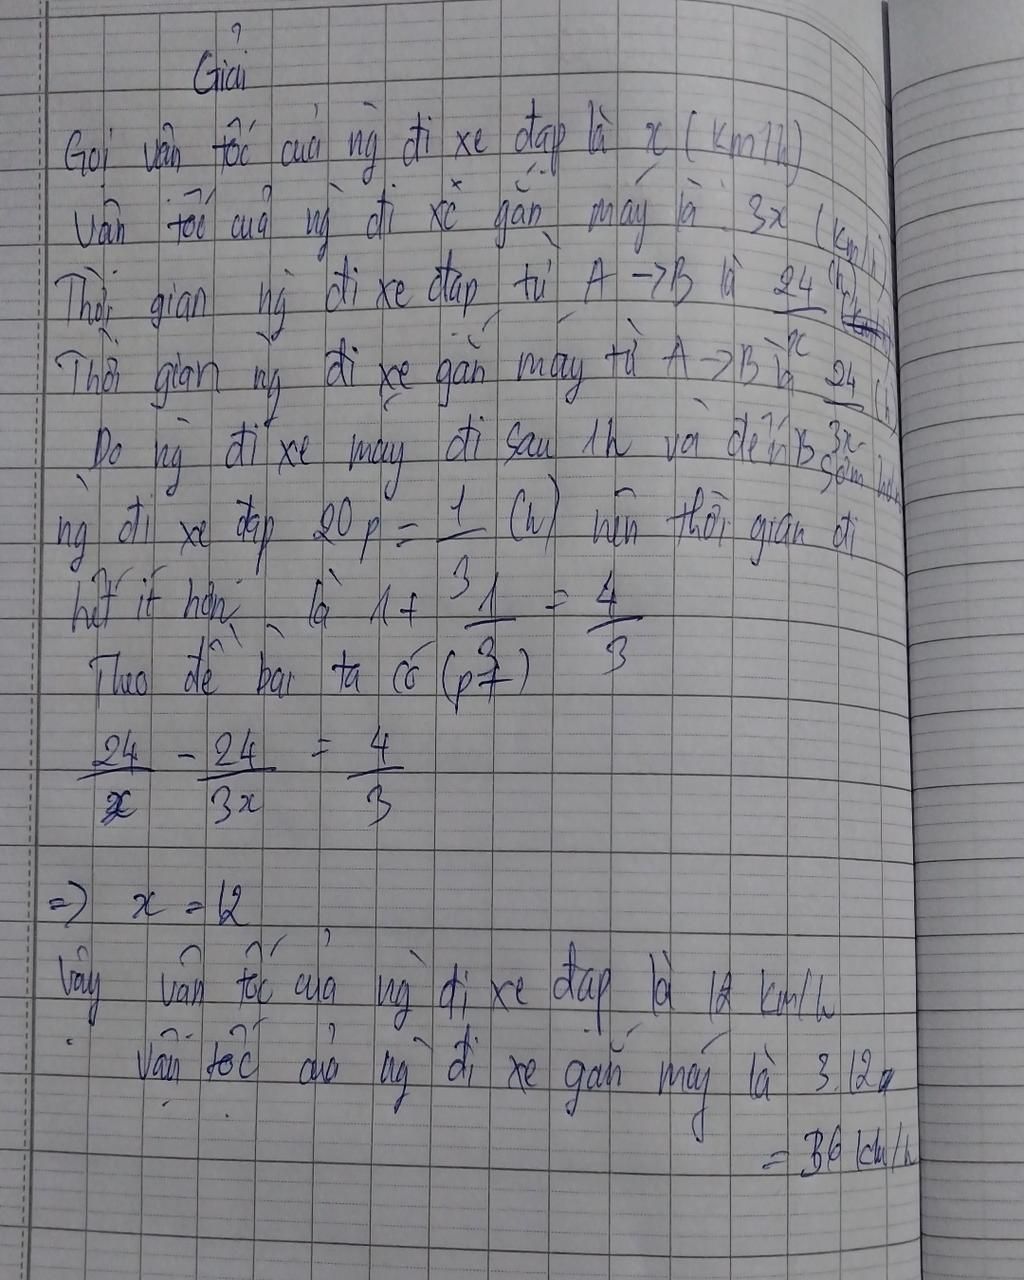 Giải
Gọi vận tốc của ng đi xe đạp là x (km/h)
Vận tốc của ng đi xe gắn máy là 3x (km/h)
Thời gian ng đi xe đạp từ A → B là 24/x (h)
Thời gian ng đi xe gắn máy từ A → B là 24/3x (h)
Do ng đi xe máy đi sau 1h và đến B sớm hơn
ng đi xe đạp 20p = 1/3 (h) nên thời gian đi
hết ít hơn là 1 + 1/3 = 4/3
Theo đề bài ta có (pt)
24/x - 24/3x = 4/3
=> x = 12
Vậy vận tốc của ng đi xe đạp là 12 km/h
Vận tốc của ng đi xe gắn máy là 3.12
= 36 km/h